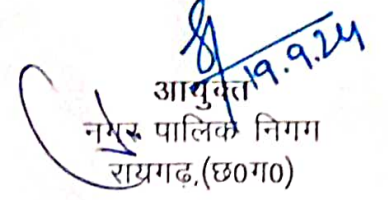 19.9.24
आयुक्त
नगर पालिक निगग
रायगढ़,(छ0ग0)